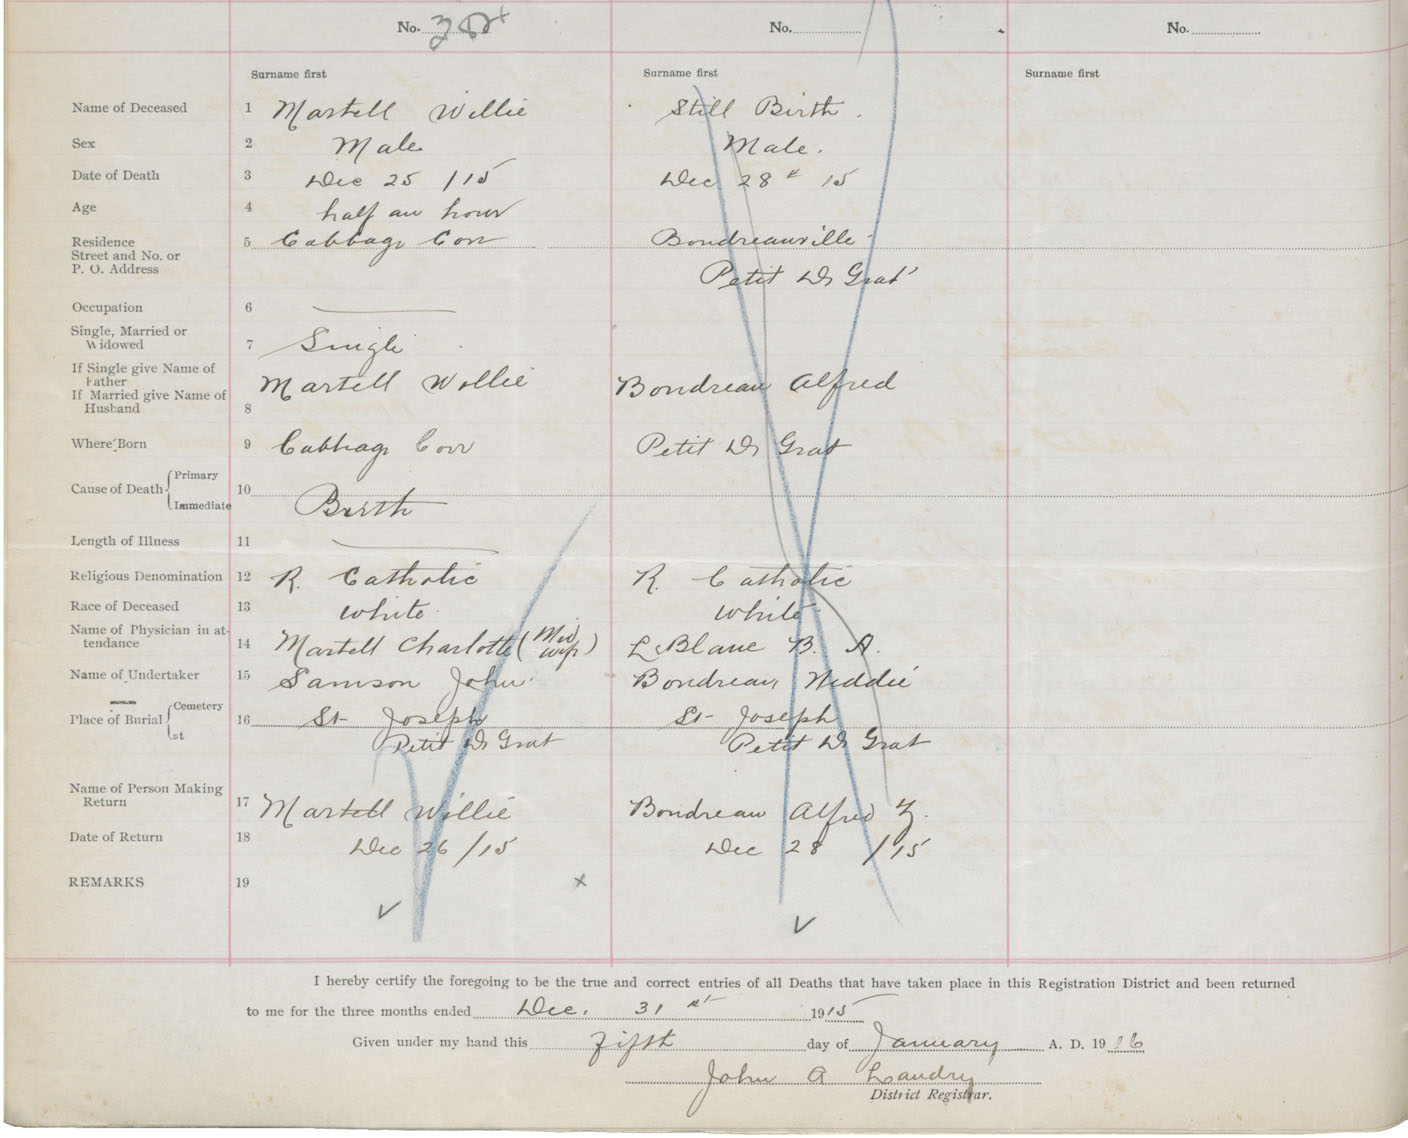 No. No. No.
Surname first Surname first Surname first
Name of Deceased 1 Martell Willie Still Birth.
Sex 2 Male Male.
Date of Death 3 Dec 25 /15 Dec 28" 15
Age 4 half an hour
Residence 5 Cabbag Cov Boudreauville
Street and No. or
P. O. Address Petit De Grat
Occupation 6
Single, Married or
Widowed 7 Single
If Single give Name of
Father Martell Willie Boudreau Alfred
If Married give Name of
Husband 8
Where Born 9 Cabbag Cov Petit De Grat
Primary
Cause of Death 10
Immediate Birth
Length of Illness 11
Religious Denomination 12 R. Catholic R. Catholic
Race of Deceased 13 White White
Name of Physician in at-
tendance 14 Martell Charlotte (Mid wife) LeBlanc B. A.
Name of Undertaker 15 Samson John Boudreau Neddie
Cemetery
Place of Burial 16 St Joseph St Joseph
at Petit De Grat Petit De Grat
Name of Person Making
Return 17 Martell Willie Boudreau Alfred Z.
Date of Return 18 Dec 26 /15 Dec 28 /15
REMARKS 19 x
I hereby certify the foregoing to be the true and correct entries of all Deaths that have taken place in this Registration District and been returned
to me for the three months ended Dec. 31st 1915
Given under my hand this fifth day of January A. D. 1916
John A Landry
District Registrar.